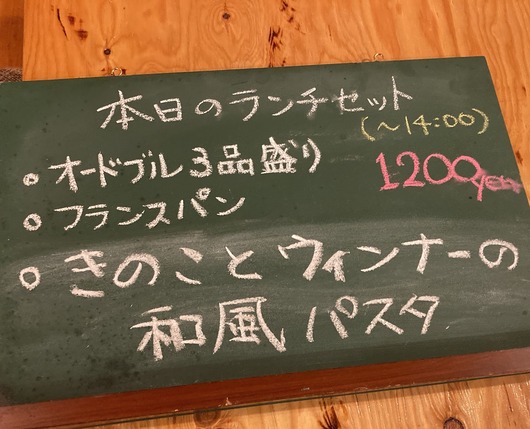 本日のランチセット
(~14:00)
・オードブル3品盛り
1200
・フランスパン
・きのことウィンナーの
和風パスタ